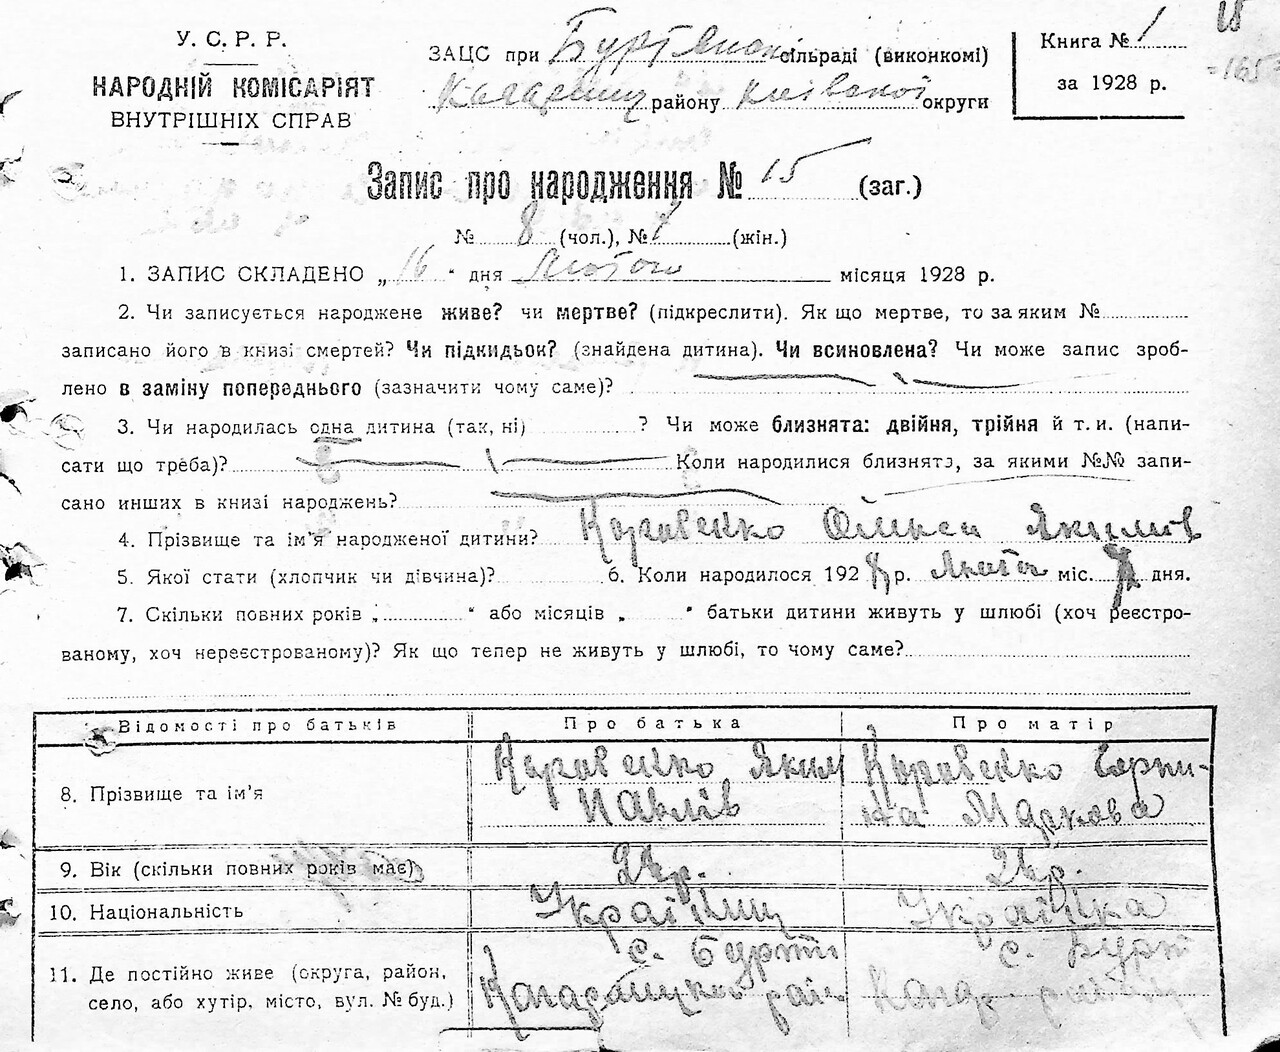 У. С. Р. Р.
НАРОДНІЙ КОМІСАРІЯТ
ВНУТРІШНІХ СПРАВ
ЗАЦС при Буртянській сільраді (виконкомі)
Кагарлиц району Київської округи
Книга № 1
за 1928 р.
Запис про народження № 15 (заг.)
№ 8 (чол.), № 7 (жін.)
1. ЗАПИС СКЛАДЕНО „ 16 “ дня Лютого місяця 1928 р.
2. Чи записується народжене живе? чи мертве? (підкреслити). Як що мертве, то за яким №
записано його в книзі смертей? Чи підкидьок? (знайдена дитина). Чи всиновлена? Чи може запис зроб-
лено в заміну попереднього (зазначити чому саме)?
3. Чи народилась одна дитина (так, ні) ? Чи може близнята: двійня, трійня й т. и. (напи-
сати що треба)? Коли народилися близнята, за якими №№ запи-
сано инших в книзі народжень?
4. Прізвище та ім'я народженої дитини? Якимів
5. Якої стати (хлопчик чи дівчина)? 6. Коли народилося 1928 р. Лютого міс. дня.
7. Скільки повних років „ “ або місяців „ “ батьки дитини живуть у шлюбі (хоч реєстро-
ваному, хоч нереєстрованому)? Як що тепер не живуть у шлюбі, то чому саме?
Відомості про батьків Про батька Про матір
8. Прізвище та ім'я Яким
Павлів Маркова
9. Вік (скільки повних років має) р. р.
10. Національність Українець Українка
11. Де постійно живе (округа, район, с. Бурти с. Бурт
село, або хутір, місто, вул. № буд.) Кагарлицький рай Кагар. району